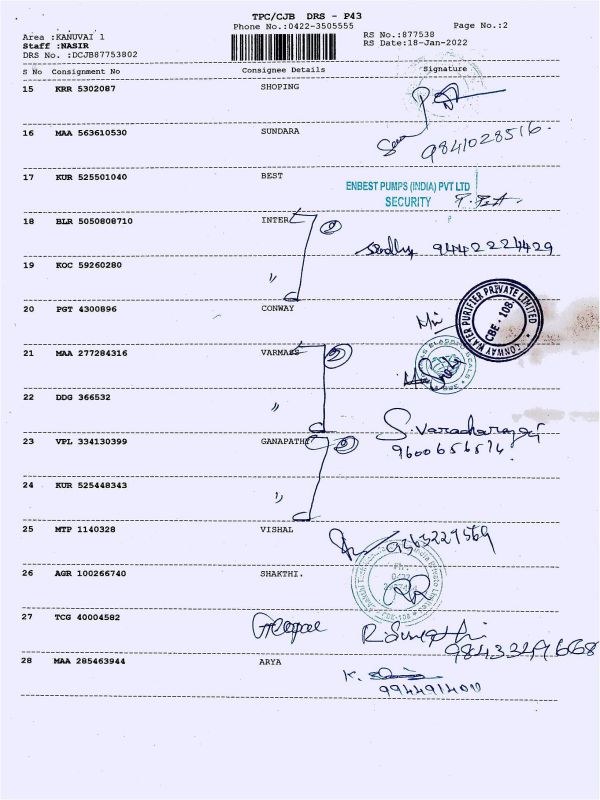 TPC/CJB DRS - P43
Phone No.:0422-3505555
Page No.:2
Area :KANUVAI 1
RS No.:877538
Staff :NASIR
RS Date:18-Jan-2022
DRS No. :DCJB87753802
S No Consignment No Consignee Details Signature
15 KRR 5302087 SHOPING
16 MAA 563610530 SUNDARA
9841028516.
17 KUR 525501040 BEST
ENBEST PUMPS (INDIA) PVT LTD
SECURITY
18 BLR 5050808710 INTER
2
9442224429
19 KOC 59260280 "
20 PGT 4300896 CONWAY
CONWAY WATER PURIFIER PRIVATE LIMITED
CBE - 108
21 MAA 277284316 VARMASS
22 DDG 366532 "
S. Varadharajan
9600656574.
23 VPL 334130399 GANAPATHI
24 KUR 525448343 "
25 MTP 1140328 VISHAL
9363227569
26 AGR 100266740 SHAKTHI.
Ph:
0422
CBE-108
27 TCG 40004582 Gopal
9843349668
28 MAA 285463944 ARYA
K.
9944914011